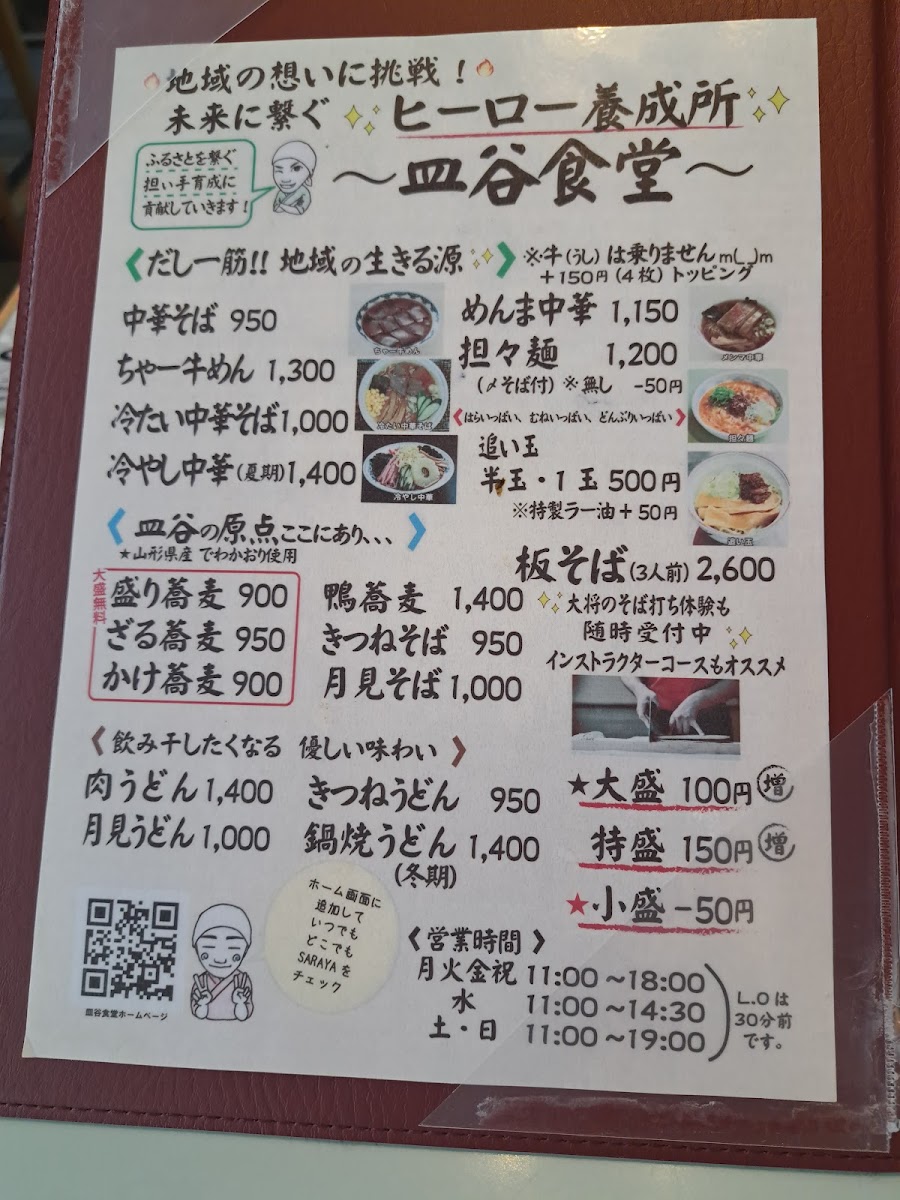 地域の想いに挑戦！
未来に繋ぐ ヒーロー養成所
～皿谷食堂～
ふるさとを繋ぐ
担い手育成に
貢献していきます！
《だし一筋!! 地域の生きる源》
※牛(うし)は乗りませんm(_)m
+150円(4枚)トッピング
中華そば 950
ちゃー牛めん 1,300
冷たい中華そば 1,000
冷やし中華(夏期)1,400
ちゃー牛めん
冷たい中華そば
冷やし中華
めんま中華 1,150
担々麺 1,200
(〆そば付)※無し -50円
《はらいっぱい、むねいっぱい、どんぶりいっぱい》
追い玉
半玉・1玉 500円
※特製ラー油+50円
メンマ中華
担々麺
追い玉
《皿谷の原点ここにあり、、、》
★山形県産 でわかおり使用
大盛無料
盛り蕎麦 900
ざる蕎麦 950
かけ蕎麦 900
鴨蕎麦 1,400
きつねそば 950
月見そば 1,000
板そば(3人前) 2,600
大将のそば打ち体験も
随時受付中
インストラクターコースもオススメ
《飲み干したくなる 優しい味わい》
肉うどん 1,400
月見うどん 1,000
きつねうどん 950
鍋焼うどん 1,400
(冬期)
★大盛 100円 増
特盛 150円 増
★小盛 -50円
皿谷食堂ホームページ
ホーム画面に
追加して
いつでも
どこでも
SARAYAを
チェック
《営業時間》
月火金祝 11:00～18:00
水 11:00～14:30
土・日 11:00～19:00
L.Oは
30分前
です。